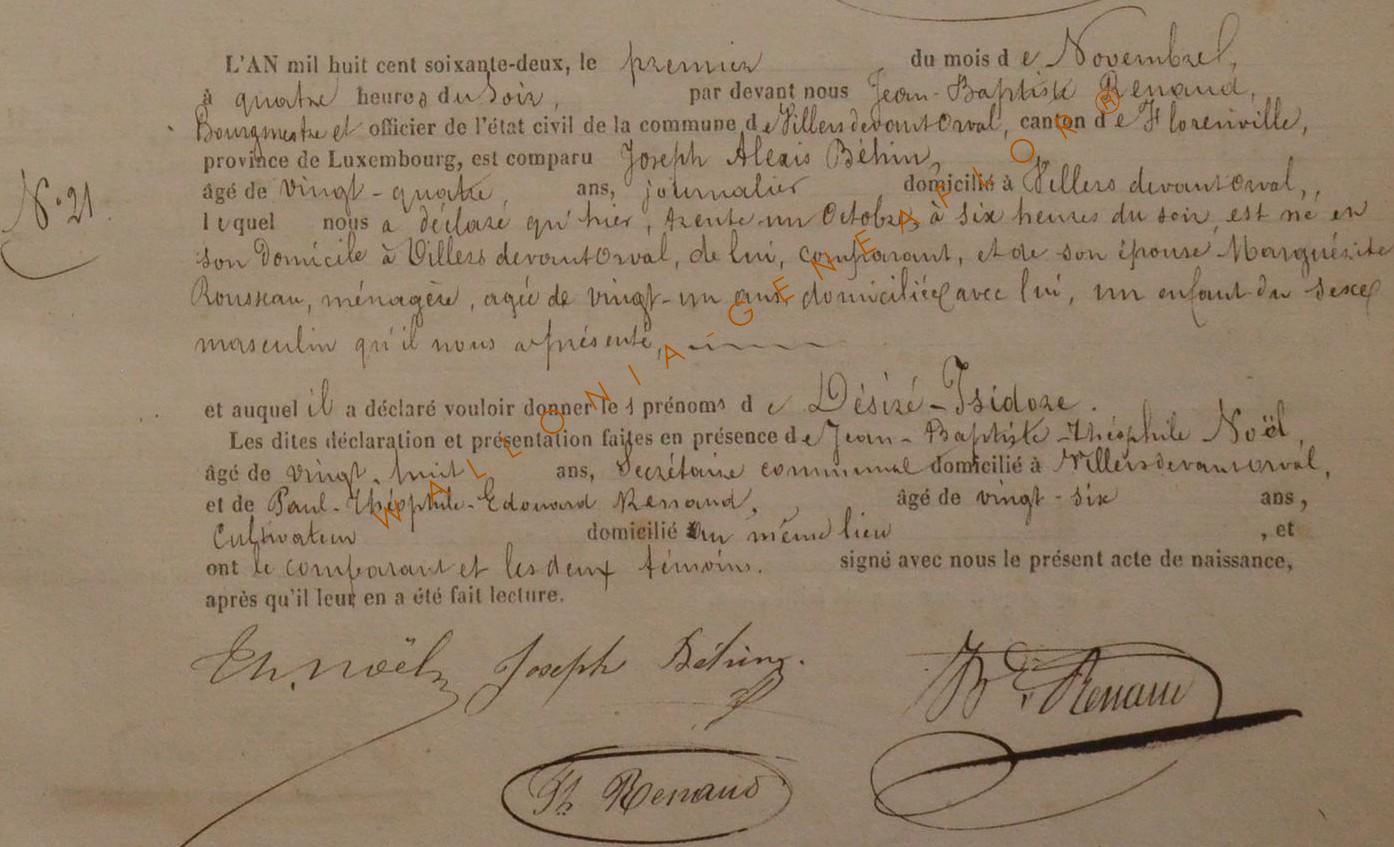 L'AN mil huit cent soixante-deux, le premier du mois de Novembre,
à quatre heures du Soir, par devant nous Jean-Baptiste Renaud,
Bourgmestre et officier de l'état civil de la commune de Villers devant Orval, canton de Florenville,
province de Luxembourg, est comparu Joseph Alexis Béhin,
N° 21
âgé de vingt-quatre ans, journalier domicilié à Villers devant Orval,
lequel nous a déclaré qu'hier, trente un Octobre, à six heures du soir, est né en
son domicile à Villers devant Orval, de lui, comparant, et de son épouse Marguérite
Rousseau, ménagère, agée de vingt-un ans domiciliée avec lui, un enfant du sexe
masculin qu'il nous a présenté,
et auquel il a déclaré vouloir donner les prénoms de Désiré-Isidore.
Les dites déclaration et présentation faites en présence de Jean-Baptiste-Théophile Noël,
âgé de vingt-huit ans, Secrétaire communal domicilié à Villers devant Orval,
et de Paul-Théophile-Edouard Renaud, âgé de vingt-six ans,
Cultivateur domicilié au même lieu, et
ont le comparant et les deux témoins. signé avec nous le présent acte de naissance,
après qu'il leur en a été fait lecture.
Th. Noël Joseph Béhin. JBte. Renaud
Th Renaud
WALLONIA GENEAFLOR®